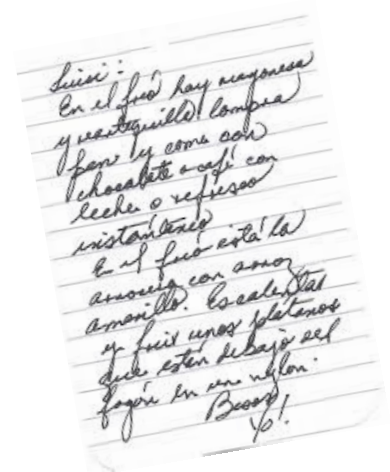 Luisi:
En el frió hay mayonesa
y mantequilla. Compra
pan y come con
chocolate o café con
leche o refresco
instantáneo
En el frió está la
con arroz
amarillo. Es calentar
y freir unos platanos
que están debajo del
fogón en un nylon.
Besos
Yo!